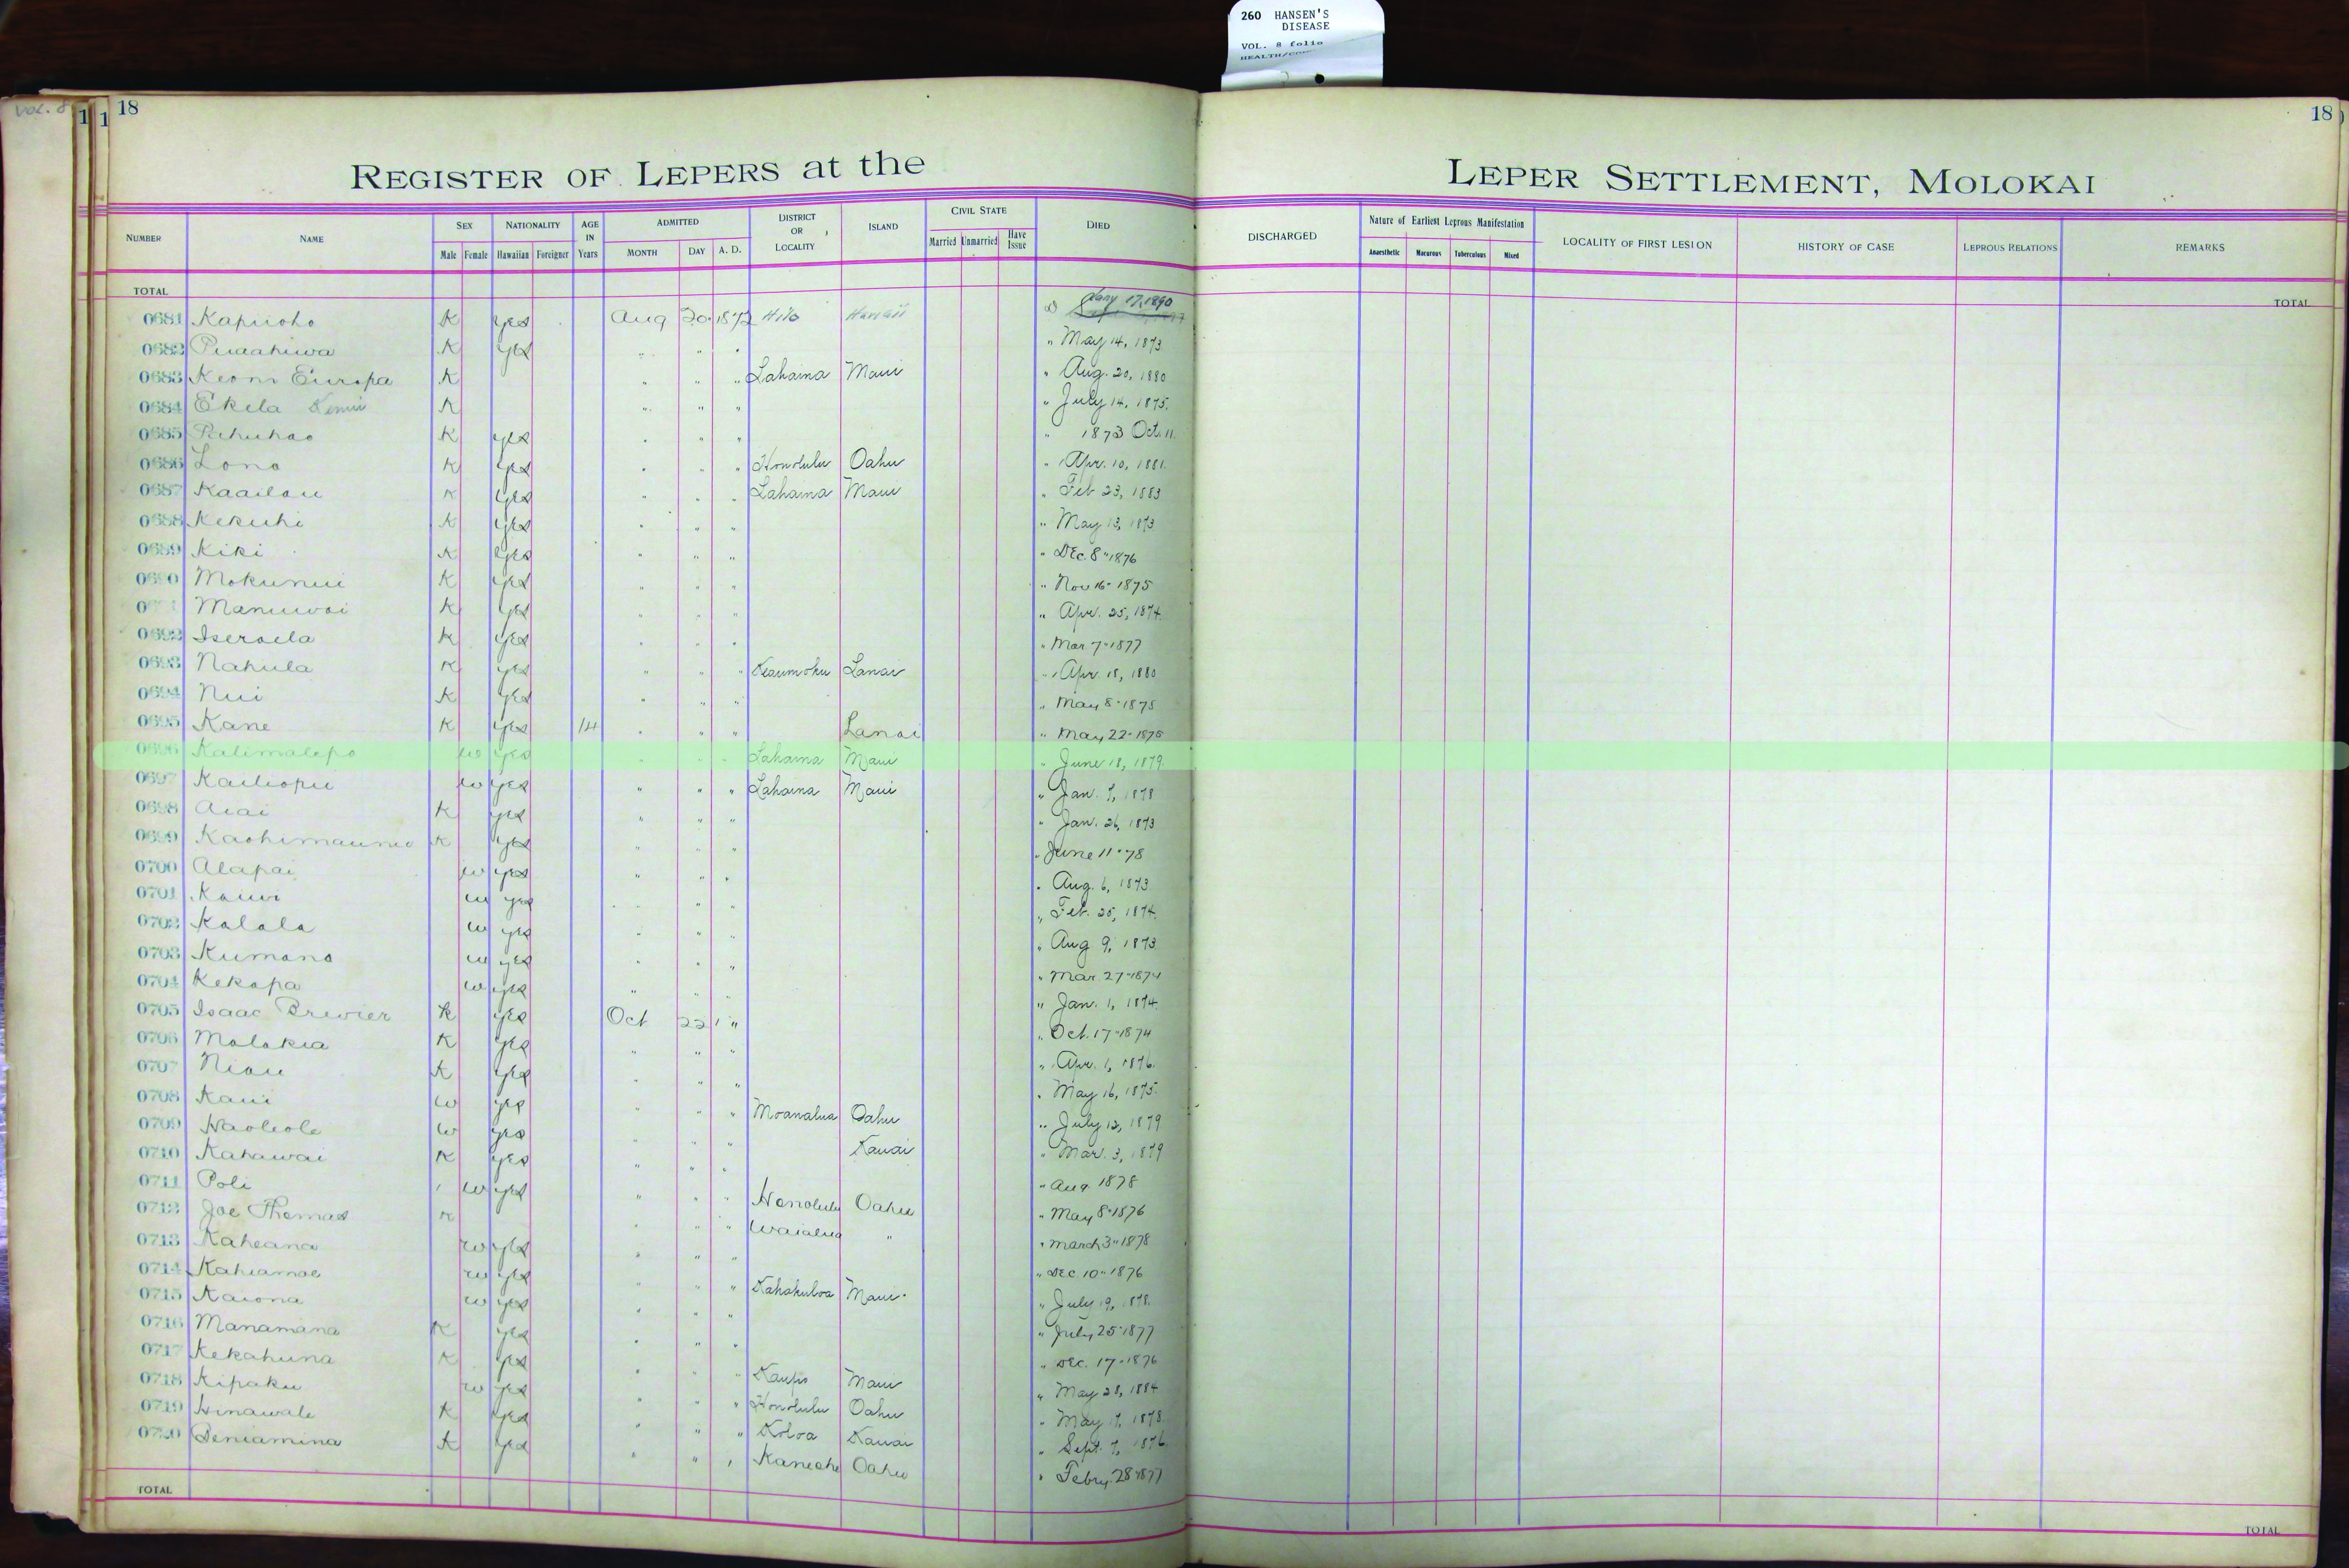 260 HANSEN'S
DISEASE
VOL. 8 folio
VOL. 8
1 1 18
18
REGISTER OF LEPERS at the LEPER SETTLEMENT, MOLOKAI
NUMBER NAME SEX Male Female NATIONALITY Hawaiian Foreigner AGE IN Years ADMITTED MONTH DAY A. D. DISTRICT OR LOCALITY ISLAND CIVIL STATE Married Unmarried Have Issue DIED DISCHARGED Nature of Earliest Leprous Manifestation Anaesthetic Macurous Tuberculous Mixed LOCALITY OF FIRST LESION HISTORY OF CASE LEPROUS RELATIONS REMARKS
TOTAL TOTAL
0681 Kapiioho K yes Aug 20 1872 Hilo Hawaii Jany 17, 1890
0682 Puaahiwa K yes " " " " May 14, 1873
0683 Keoni Europa K " " " Lahaina Maui " Aug. 20, 1880
0684 Ekela K " " " " July 14, 1875.
0685 Pahuhao K yes " " " " 1873 Oct. 11.
0686 Lono K yes " " " Honolulu Oahu " Apr. 10, 1881.
0687 Kaailau K yes " " " Lahaina Maui " Feb 23, 1883
0688 Kekuhi K yes " " " " May 13, 1873
0689 Kiki K yes " " " " Dec. 8" 1876
0690 Mokunui K yes " " " " Nov 16- 1875
Manuwai K yes " " " " Apr. 25, 1874.
0692 Iseraela K yes " " " " Mar. 7" 1877
0693 Nahula K yes " " " Keaumoku Lanai " Apr. 18, 1880
0694 Nui K yes " " " " May 8" 1875
0695 Kane K yes 14 " " " Lanai " May 22- 1875
0696 Kalimalepo w yes " " " Lahaina Maui " June 18, 1879.
0697 Kailiopii w yes " " " Lahaina Maui " Jan. 7, 1878
0698 Aiai K yes " " " " Jan. 26, 1873
0699 K yes " " " " June 11" 78
0700 Alapai w yes " " " " Aug. 6, 1873
0701 Kauwi w yes " " " " Feb. 25, 1874.
0702 Kalala w yes " " " " Aug 9, 1873.
0703 Kumano w yes " " " " Mar. 27- 1874
0704 Kekapa w yes " " " " Jan. 1, 1874.
0705 Isaac Brewier K yes Oct 22 " " Oct. 17- 1874
0706 Molokia K yes " " " " Apr. 1, 1876.
0707 Niau K yes " " " " May 16, 1875.
0708 Kaui w yes " " " Moanalua Oahu " July 12, 1879
0709 Haoleole w yes " " " Kauai " Mar. 3, 1879
0710 Kahawai K yes " " " " Aug 1878
0711 Poli w yes " " " Honolulu Oahu " May 8" 1876
0712 Joe Thomas K " " " Waialua " " March 3" 1878
0713 Kaheana w yes " " " " Dec 10" 1876
0714 Kahiamoe w yes " " " Kahakuloa Maui " July 19, 1878.
0715 Kaiona w yes " " " " July 25" 1877
0716 Manamana K yes " " " " Dec. 17- 1876
0717 Kekahuna K yes " " " Kaupo Maui " May 28, 1884
0718 Kipaku w yes " " " Honolulu Oahu " May 17, 1878.
0719 Hinawale K yes " " " Koloa Kauai " Sept. 7, 1876.
0720 Beniamina K yes " " " Kaneohe Oahu " Febry. 28" 1877
TOTAL TOTAL